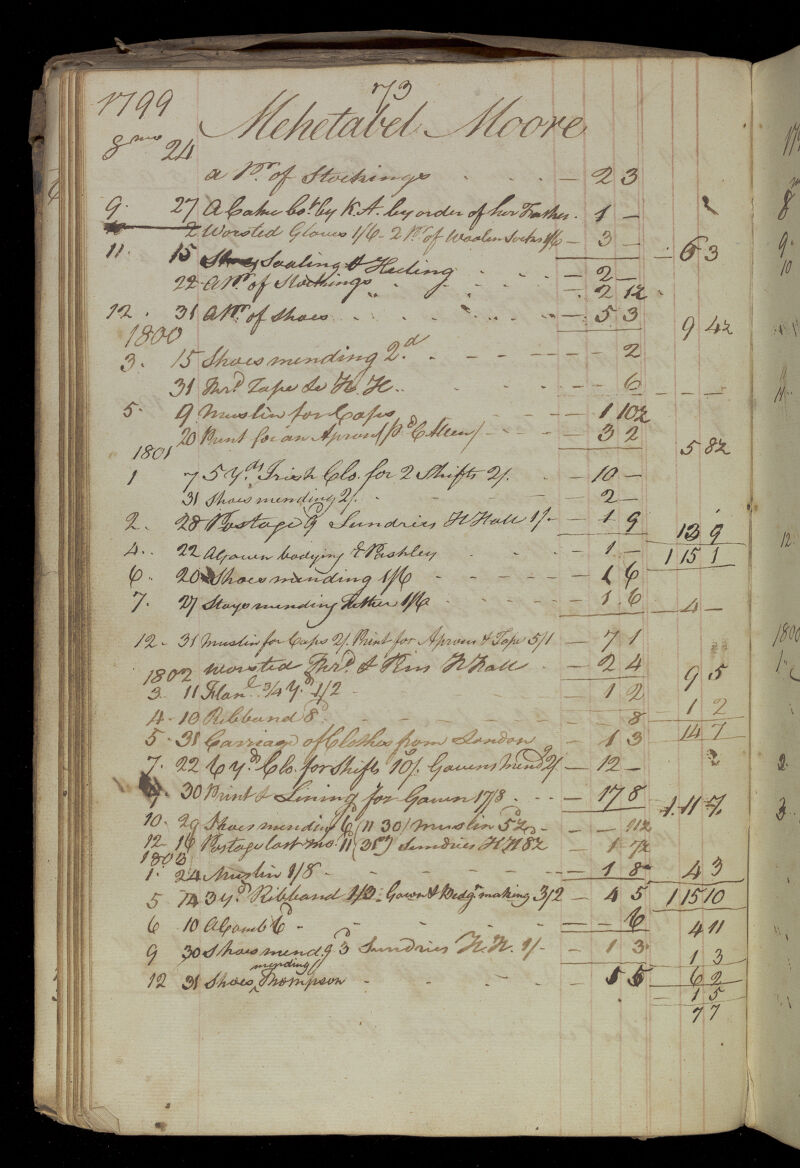 1799 73
Mehetabel Moore
8mo 24
a Pr. of Stockings - 2 3
9. 27 A Cake bot. by K.A. by order of her Father. - 1 -
2 Worsted Gloves 1/6 - 2 Pr. of Woolen Socks 1/6 - 3 - - 6 3
11. 15 Shoes Soaling & Heeling - 2 -
22 a Pr. of Stockings - 2 1½
12. 31 A Pr. of Shoes - 5 3 9 4½
1800
3. 15 Shoes mending 2d. - - 2
31 Thrd. Tape &c H.H. - - 6
5. 9 Muslin for Caps - 1 10½
20 Print for an Apron - 3 2 5 8½
1801
1 7 5 Yds. Irish Clo. for 2 Shifts 2/. - 10 -
31 Shoes mending 2/. - 2 -
2. 28 Postage 9 Sundries H Hall 1/. - 1 9 13 9
4. 22 A Gown bodying - 1 - 1 15 1
6. 20 Shoes mending 1/6 - 1 6
7. 27 Stays mending 1/6 - 1. 6 - 4 -
12. 31 Muslin for Caps 2/. Print for Aprons & Tape 5/1 - 7 1
worsted Thrd. & Pins H Hall - 2 4 9 5
1802
3 11 Flanl. ¾ Yd 1/2 - 1 2 1 2
4. 10 Ribband 8d - 8 14 7
5. 31 Carriage of Clothes from London - 1 3
7. 22 6 Yds Clo. for Shifts 10/. Gowns mendg 2/ - 12 -
30 Print & Lining for Gown 17/8 - 17 8 1. 11 7
10. 29 Shoes mending 6d (11 30) Muslin 5½d - - 11½
12 16 Postage last mo. 11d (31st) Sundries HH 8½ - 1 7½
1803
1. 24 Muslin 1/8 - 1 8 4 3
5 14 3 Yd. Ribband 1/3 Gown & Bedgn. making 3/2 - 4 5 1 15 10
6 10 A Comb 6d - - 6 4 11
9 30 Shoes mendg. 3d Sundries H.H. 1/ - 1 3 1 3
12 31 Shoes mending Thompson 6 2
- 1 5
7 7